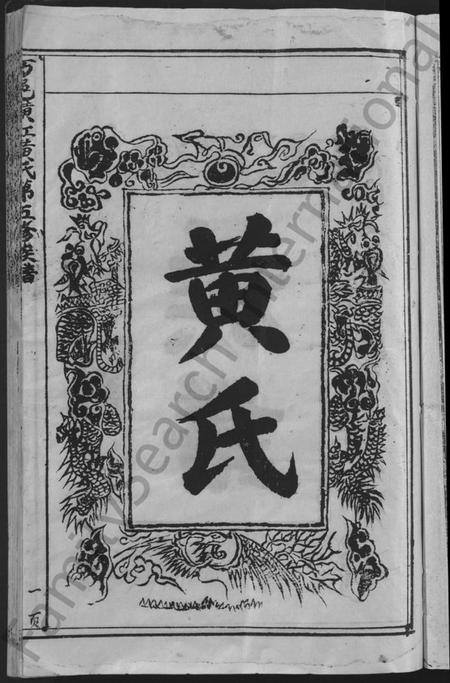 黄氏
黄江黄氏第五修族譜
一頁
FamilySearch International